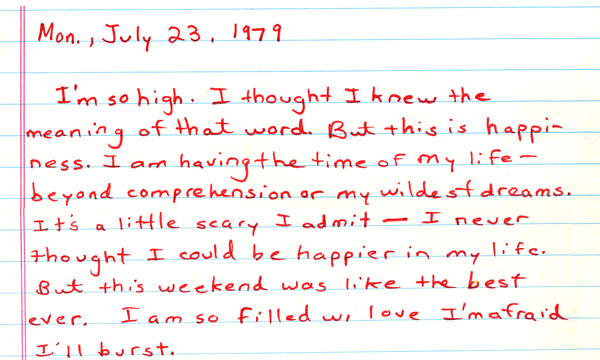 Mon., July 23, 1979
I'm so high. I thought I knew the
meaning of that word. But this is happi-
ness. I am having the time of my life —
beyond comprehension or my wildest dreams.
It's a little scary I admit — I never
thought I could be happier in my life.
But this weekend was like the best
ever. I am so filled w, love I'm afraid
I'll burst.